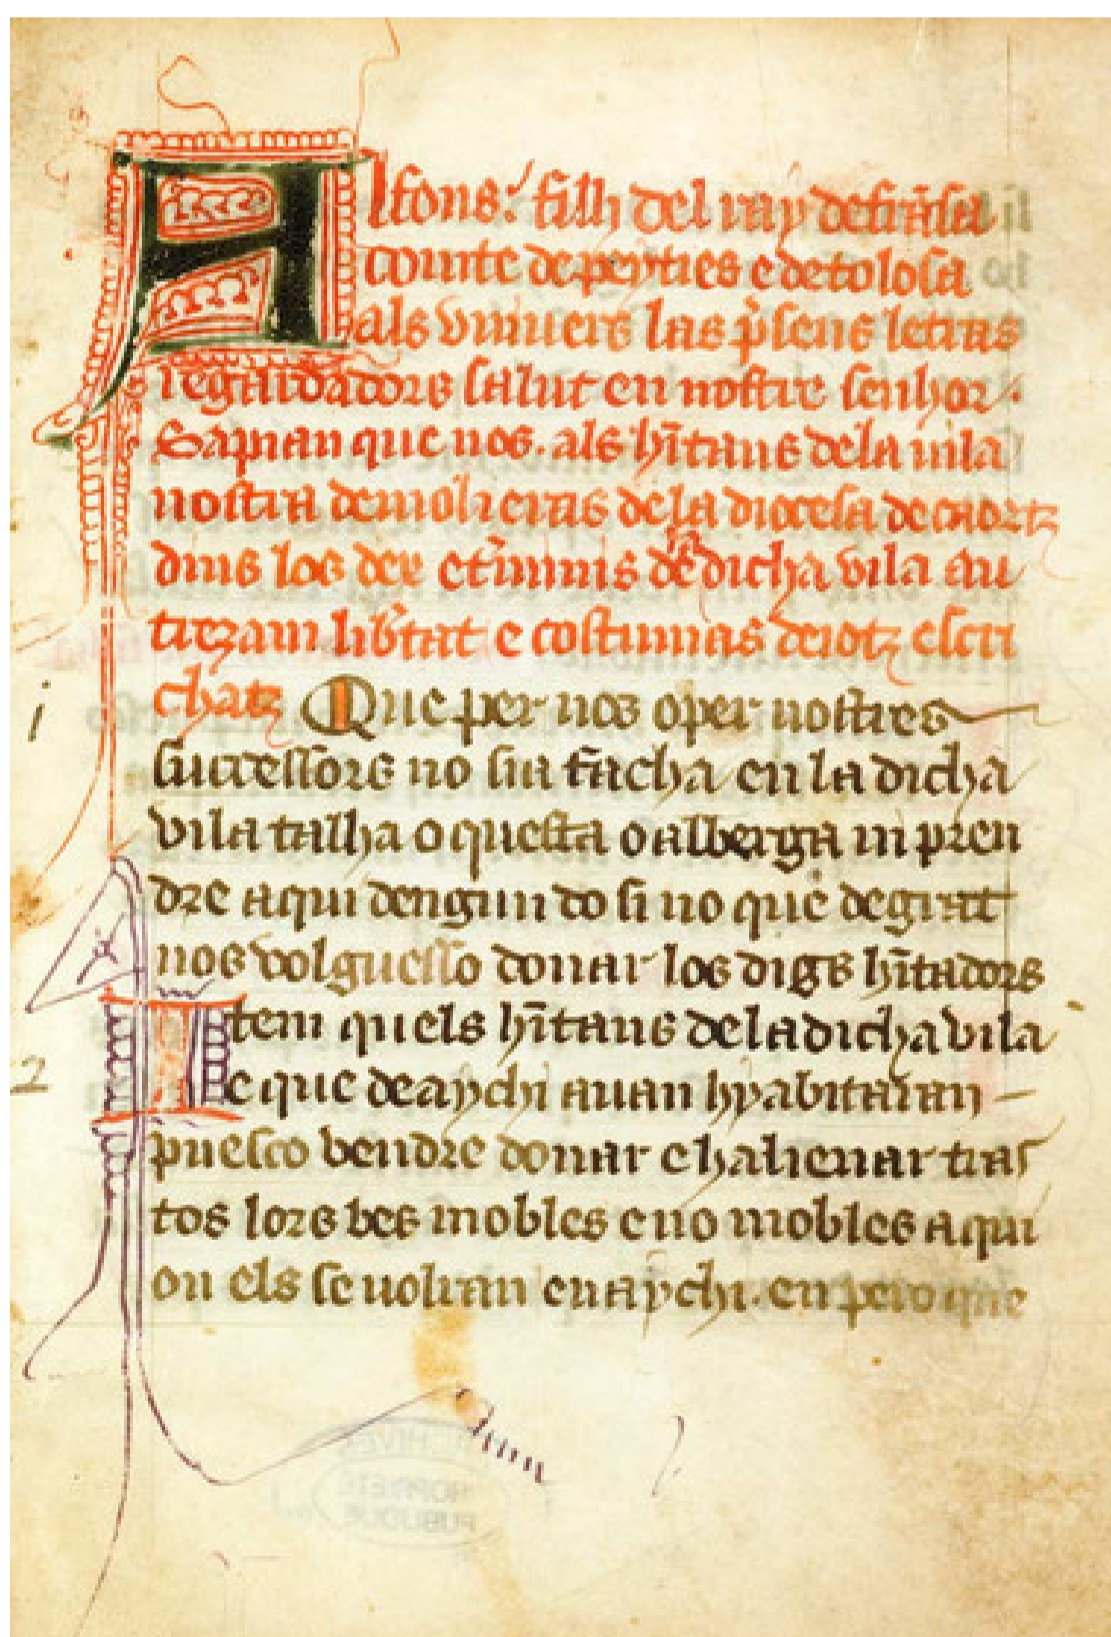 Alfons. filh del ray de fra̅sa
comte de peytieus e de tolosa
als univers las p̅sens letras
regardadors salut en nostre senhor.
Sapian que nos. als hi̅tans de la vila
nostra de molieras de la diocesa de caortz
dins los dex e t̅minis de la dicha vila au
treyam lib̅tat e costumas desotz escri
chatz Que per nos o per nostres
successors no sia facha en la dicha
vila talha o questa o alberga ni pren
dre aqui dengun do si no que de grat
nos volguesso donar los digs hi̅tadors
1
Item quels hi̅tans de la dicha vila
e que de aychi auan hy abitaran
2
puesco vendre donar e halienar tras
tos lors bes mobles e no mobles a qui
on els se volran en aychi. en pero que
PROPRIETE
PUBLIQUE